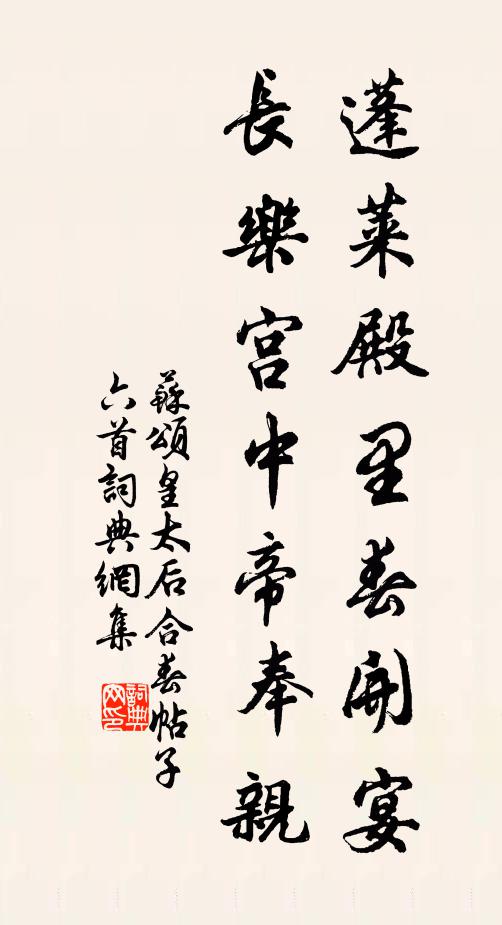 蓬萊殿里春開宴
長樂宮中帝奉親
蘇頌皇太后合春帖子
六首詞典網集
詞典网印